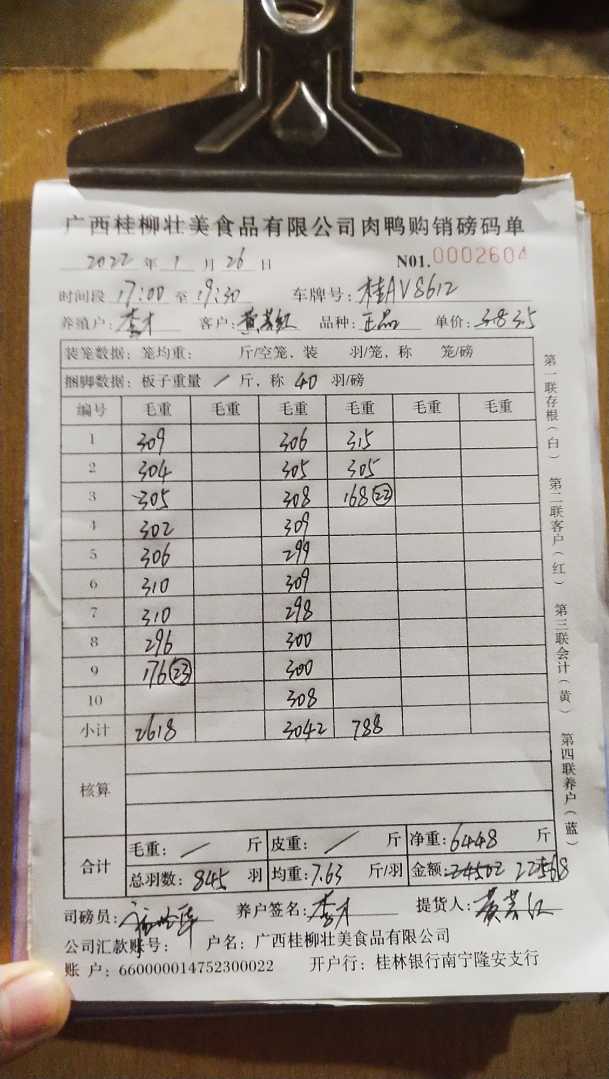 广西桂柳壮美食品有限公司肉鸭购销磅码单
2022 年 1 月 26 日 N01.0002604
时间段 17:00 至 19:30 车牌号: 桂AV8612
养殖户: 李才 客户: 黄芳红 品种: 正品 单价: 3.835
装笼数据: 笼均重: 斤/空笼, 装 羽/笼, 称 笼/磅
捆脚数据: 板子重量 / 斤, 称 40 羽/磅
编号 毛重 毛重 毛重 毛重 毛重 毛重
1 309 306 315
2 304 305 305
3 305 308 168 23
4 302 309
5 306 299
6 310 309
7 310 298
8 296 300
9 176 23 300
10 308
小计 2618 3042 788
核算
合计 毛重: / 斤 皮重: / 斤 净重: 6448 斤
总羽数: 845 羽 均重: 7.63 斤/羽 金额: 24502 22568
司磅员: 养户签名: 李才 提货人: 黄芳红
公司汇款账号: 户名: 广西桂柳壮美食品有限公司
账 户: 660000014752300022 开户行: 桂林银行南宁隆安支行
第一联存根(白) 第二联客户(红) 第三联会计(黄) 第四联养户(蓝)